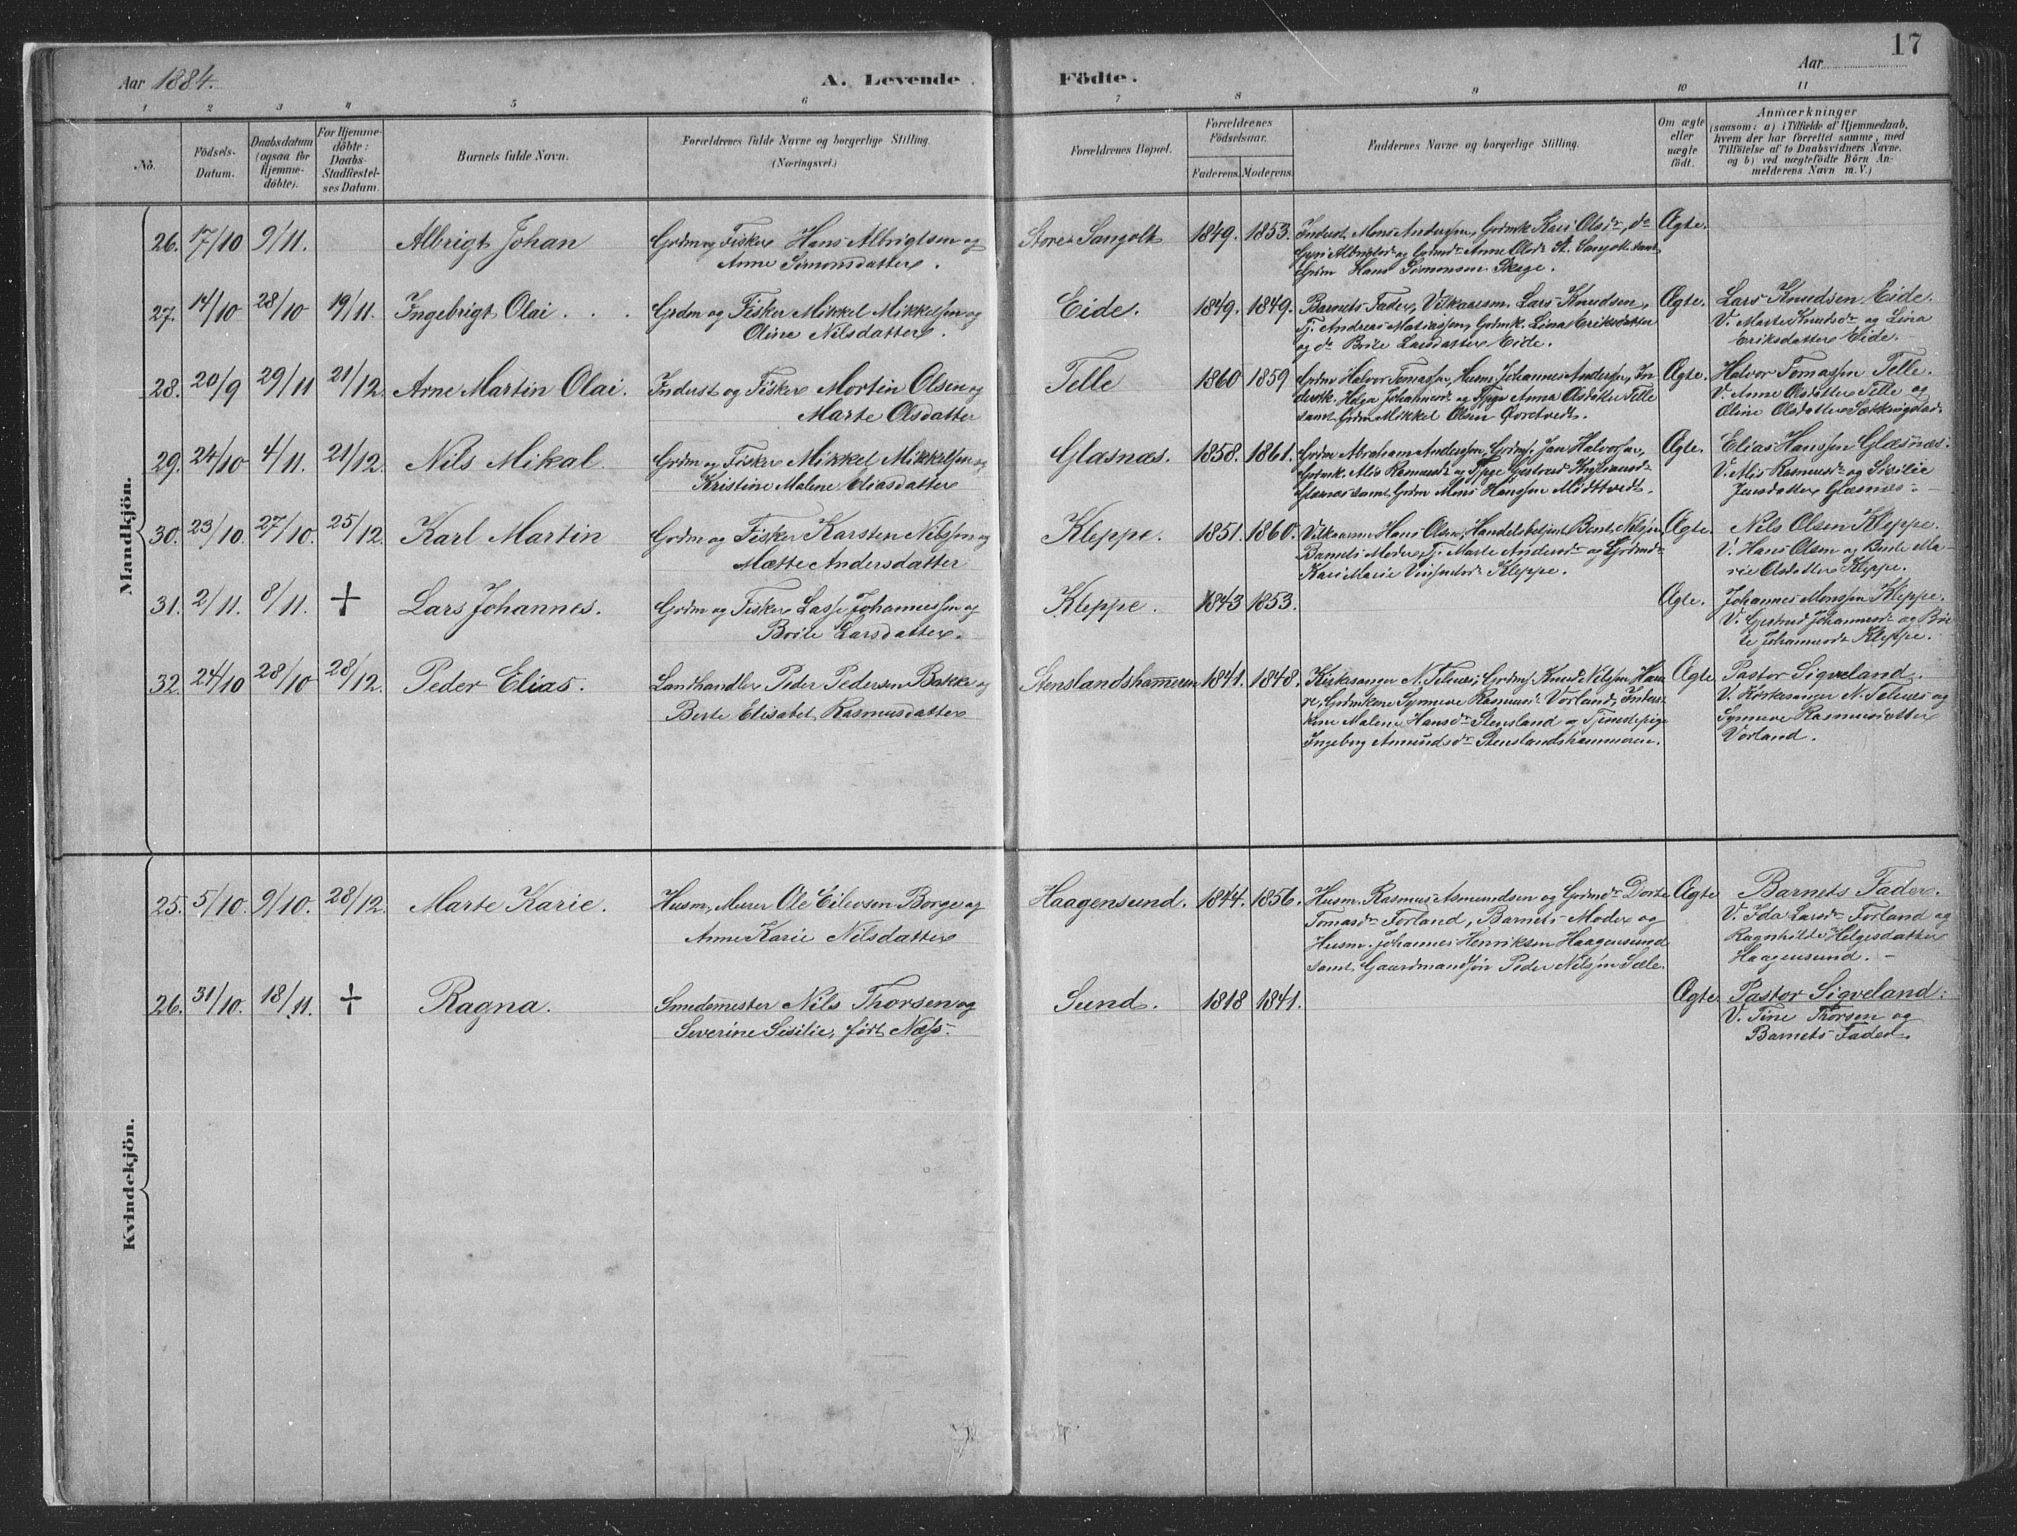 17
Aar 1884.
A. Levende Födte.
Aar
1 2 3 4 5 6 7 8 9 10 11
No.
Födsels-
Datum.
Daabsdatum
(ogsaa for
Hjemme-
döbte).
For Hjemme-
döbte:
Daabs-
Stadfæstel-
ses Datum.
Barnets fulde Navn.
Forældrenes fulde Navne og borgerlige Stilling.
(Næringsvei.)
Forældrenes Bopæl.
Forældrenes
Födselsaar.
Faderens. Moderens.
Faddernes Navne og borgerlige Stilling.
Om ægte
eller
uægte
födt.
Anmærkninger
(saasom: a) i Tilfælde af Hjemmedaab,
hvem der har forrettet samme, med
Tilföielse af to Daabsvidners Navne,
og b) ved uægtefödte Börn An-
melderens Navn m. V.)
Mandkjön.
26. 17/10 9/11. Albrigt Johan
Grdm og Fisker Hans Albrigtsen og
Anne Simonsdatter.
Store Sangolt 1849. 1853.
Inderst Mons Andersen, Grdmk Kari Olsdr, do
Guri Albrigtsdr og Grdmdr Anne Olsdr St. Sangolt samt
Grdm Hans Simonsen Skage.
Ægte.
27. 14/10 28/10 19/11. Ingebrigt Olai
Grdm og Fisker Mikkel Mikkelsen og
Oline Nilsdatter.
Eide. 1849. 1849.
Barnets Fader, Vilkaarsm. Lars Knudsen,
Tj. Andreas Matiassen, Grdmk. Lina Eriksdatter
og do Brite Larsdatter Eide.
Ægte.
Lars Knudsen Eide.
V. Marte Knudsdr og Lina
Eriksdatter Eide.
28. 20/9 29/11 21/12. Arne Martin Olai.
Inderst og Fisker Mortin Olsen og
Marte Olsdatter
Telle 1860 1859
Grdm Halvor Tomassen, Husm. Johannes Andersen, In-
derstk. Helga Johannesdr og Pige Anna Olsdatter Telle
samt Grdm Mikkel Olsen Qvretvedt.
Ægte.
Halvor Tomassen Telle.
V. Anne Olsdatter Telle og
Oline Olsdatter
29. 24/10 4/11. 21/12. Nils Mikal.
Grdm og Fisker Mikkel Mikkelsen og
Kristine Malene Eliasdatter
Glæsnæs. 1858. 1861.
Grdm Abraham Andersen, Grdms. Jan Halvorsen,
Grdmk. Alis Rasmusdr og Pige Gjertrud
Glæsnæs samt Grdm Mons Hanssen Midttvedt.
Ægte.
Elias Hanssen Glæsnæs.
V. Alis Rasmusdr og Sisilie
Jensdatter Glæsnæs.
30. 23/10. 27/10. 25/12. Karl Martin
Grdm og Fisker Karsten Nilssen og
Mætte Andersdatter
Kleppe. 1851. 1860.
Vilkaarm Hans Olsen, Handelsbetjent Bent Nilsen,
Barnets Moder, Tj. Marte Andersdr og Grdmdr
Kari Marie Vinsentsdr Kleppe.
Ægte.
Nils Olsen Kleppe.
V. Hans Olsen og Brite Ma-
rie Olsdatter Kleppe.
31. 2/11. 8/11. + Lars Johannes.
Grdm og Fisker Lasse Johannessen og
Brite Larsdatter.
Kleppe. 1843 1853.
Ægte.
Johannes Monssen Kleppe.
V. Gjertrud Johannesdr og Bri-
te Johannesdr Kleppe.
32. 24/10 28/10 28/12. Peder Elias.
Landhandler Peder Pedersen Bakke og
Berte Elisabet Rasmusdatter
Stenslandshammeren 1841. 1848.
Kirkesanger N. Telnes, Grdms. Knud Nilsen
Grdmkone Synneve Rasmusdr Vorland, Inderst-
kone Malene Hansdr Stensland og Tjenestepige
Ingeborg Amundsdr Stenslandshammeren.
Ægte
Pastor Sigveland.
V. Kirkesanger N. Telnes og
Synneve Rasmusdatter
Vorland.
Kvindekjön.
25. 5/10. 9/10. 28/12. Marte Karie.
Husm, Murer Ole Eilevsen Borge og
Anne Karie Nilsdatter
Haagensund. 1844. 1856.
Husm. Rasmus Asmundsen og Grdmdr Dorte
Tomasdr Forland, Barnets Moder og
Husm. Johannes Henriksen Haagensund
samt Gaardmandssön Peder Nilssen Sæle.
Ægte
Barnets Fader.
V. Ida Larsdr Forland og
Ragnhilde Helgesdatter
Haagensund.
26. 31/10. 18/11. + Ragna.
Smedemester Nils Thorsen og
Severine Sisilie, født Næss.
Sund. 1818 1841.
Ægte.
Pastor Sigveland.
V. Tine Thorsen og
Barnets Fader.